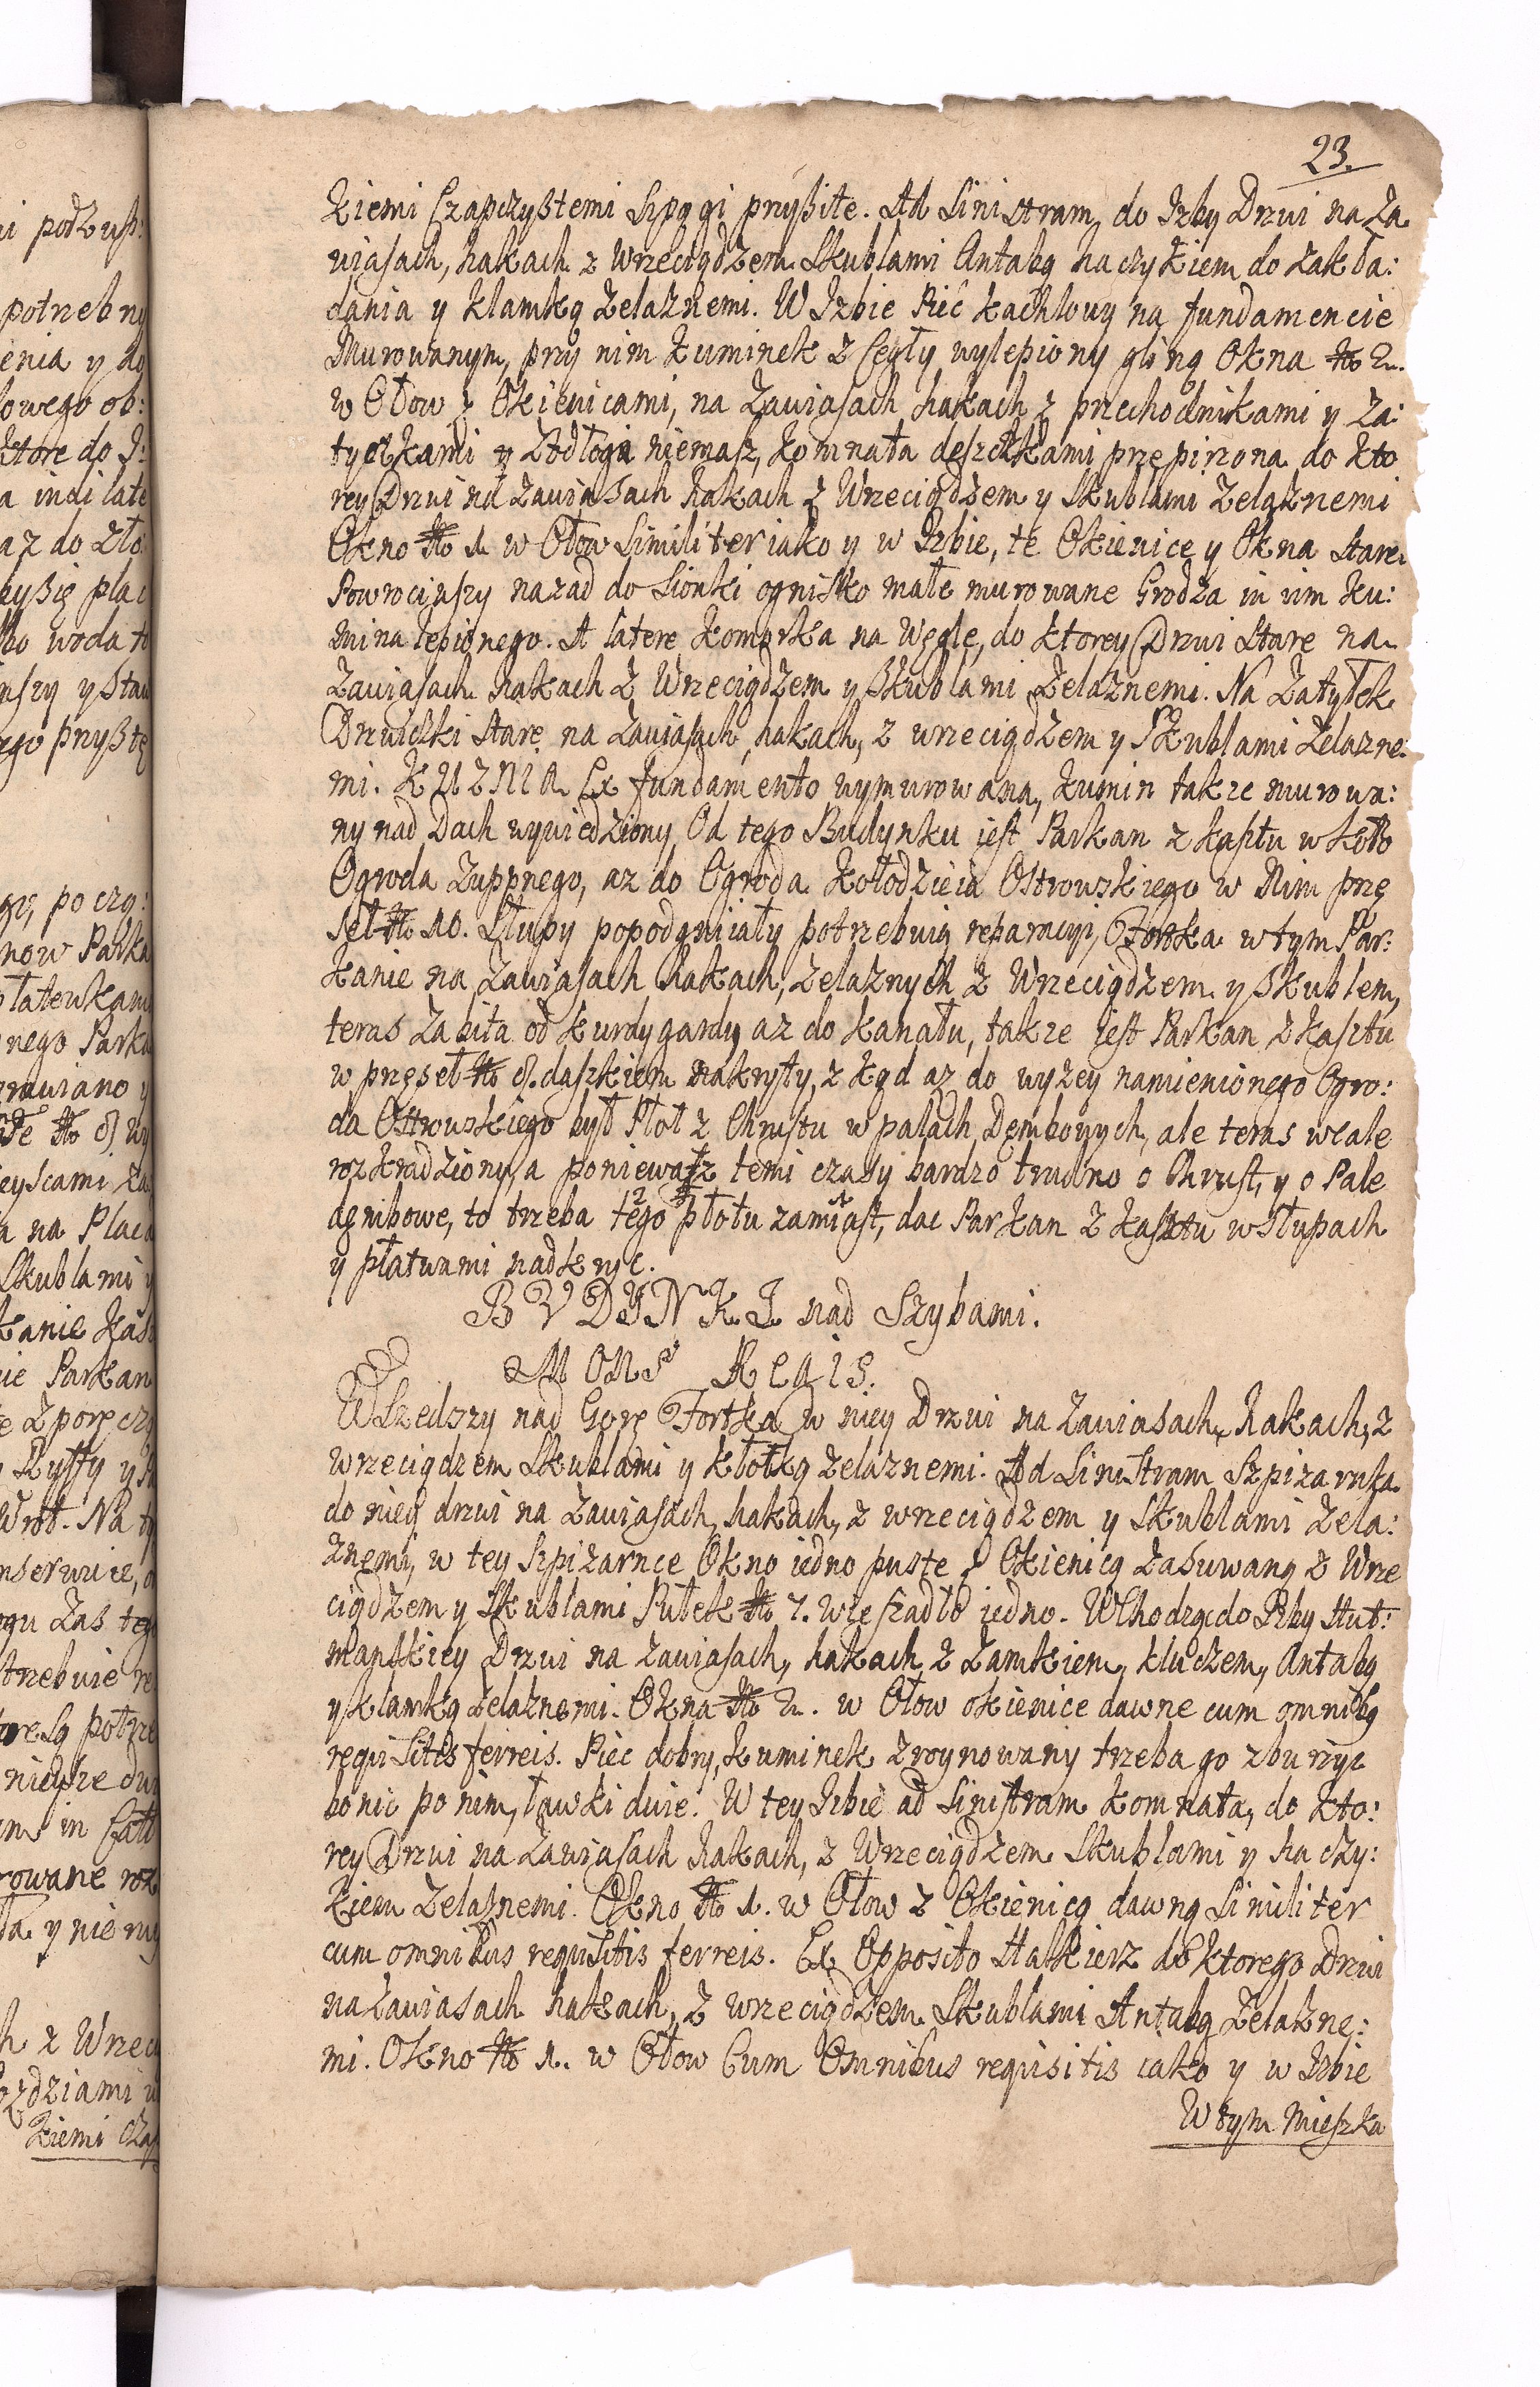 23.
kiemi Czapczystemi Szpągi przybite. Ad Sinistram do Izby Drzwi na Za
wiasach, hakach z Wrzeciądzem Skublami Antabą haczykiem do zakła:
dania y klamką żelaznemi. W Izbie Piec kachlowy na fundamencie
Murowanym, przy nim Kuminek z Cegły wylepiony gliną Okna No 2.
w Ołow z Okienicami, na Zawiasach hakach z przechodnikami y Za:
tyczkami y Podłogi niemasz, komnata deszczkami przepirzona do kto
rey Drzwi na zawiasach hakach z Wrzeciądzem y Skublami Zelaznemi
Okno No 1. w Ołow Similiter iako y w Izbie, te Okienice y Okna stare.
Powrociwszy nazad do Sionki ognisko małe murowane Grodza in nim ku:
mina lepionego. A latere komorka na Węgle, do ktorey Drzwi stare na
Zawiasach hakach z Wrzeciądzem y Skublami Zelaznemi. Na Zatyłek
Drzwiczki stare na zawiasach, hakach, z wrzeciądzem y Skublami zelazne:
mi. KUZNIA Ex fundamento wymurowana, kumin takze murowa:
ny nad Dach wywiedziony, Od tego Budynku jest Parkan z kasztu w koło
Ogroda Zuppnego, az do Ogroda Kołodzieia Ostrowskiego w Nim przę
seł No 10. Słupy popodgniiały potrzebuią reparacyi, Fortka w tym Par:
kanie na Zawiasach hakach, zelaznych z Wrzeciądzem y Skublem,
teras zabita od kurdygardy az do kanału, takze jest Parkan z kasztu
w przęseł No 8. daszkiem nakryty, z kąd az do wyzey namienionego Ogro:
da Ostrowskiego był Płot z Chrustu w palach Dembowych, ale teras wcale
rozkradziony, a poniewasz temi czasy bardzo trudno o Chrust, y o Pale
dembowe, to trzeba tego płotu zamiast, dac Parkan z kasztu w słupach
2 3 1
y płatwami nadkryc.
BVDYNKI nad Szybami.
MONS REGIS.
Wszedszy nad Gorę Fortka w niey Drzwi na zawiasach, hakach, z
wrzeciądzem Skublami y kłotką zelaznemi. Ad Sinistram Szpizarnka
do niey drzwi na Zawiasach, hakach, z wrzeciądzem y Skublami zela:
znemi, w tey Szpizarnce Okno iedno puste z Okienicą zasuwaną z Wrze
ciądzem y Skublami Pułek No 7. Wieszadło iedno. Wchodząc do Izby Hut:
manskiey Drzwi na zawiasach, hakach z Zamkiem, kluczem, Antabą
y klamką zelaznemi. Okna No 2. w Ołow okienice dawne cum omnibq
requisitis ferreis. Piec dobry, kuminek zroynowany trzeba go zburzyc
bo nic po nim, ławki dwie. W tey Izbie ad Sinistram komnata, do kto:
rey Drzwi na Zawiasach hakach, z Wrzeciądzem Skublami y haczy:
kiem zelaznemi. Okno No 1. w Ołow z Okienicą dawną Similiter
cum omnibus requisitis ferreis. Ex Opposito Halkierz do ktorego Drzwi
na zawiasach hakach, z wrzeciądzem Skublami Antabą zelazne:
mi. Okno No 1. w Ołow Cum Omnibus requisitis iako y w Izbie
W tym Mieszka